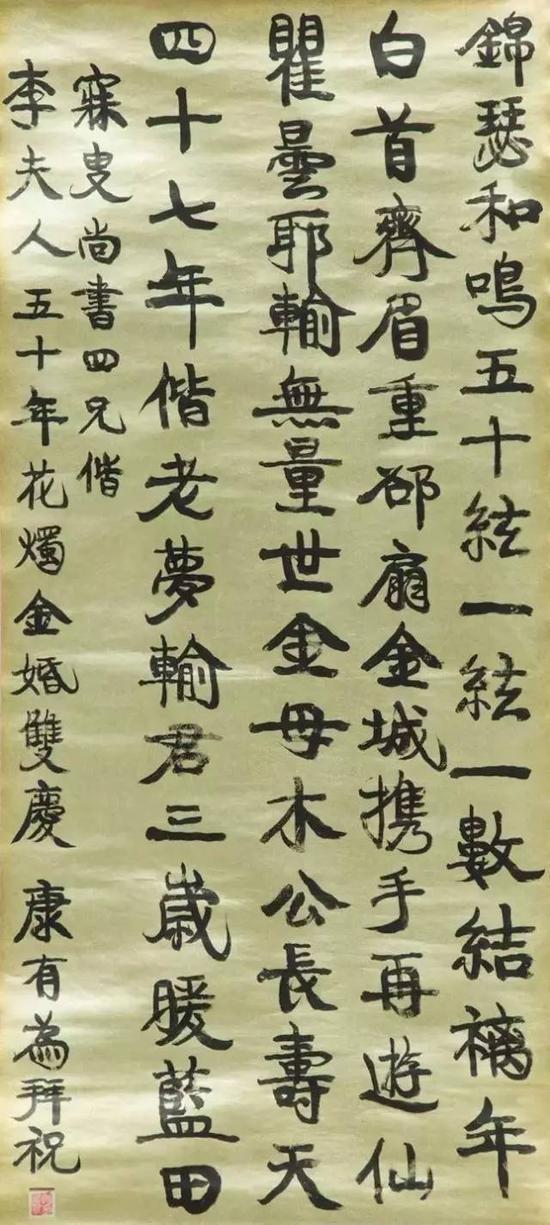 錦瑟和鳴五十絃一絃一數結褵年
白首齊眉重郤扇金城携手再遊仙
瞿曇耶輸無量世金母木公長壽天
四十七年偕老夢輸君三歲暖藍田
寐叟尚書四兄偕
李夫人五十年花燭金婚雙慶 康有為拜祝